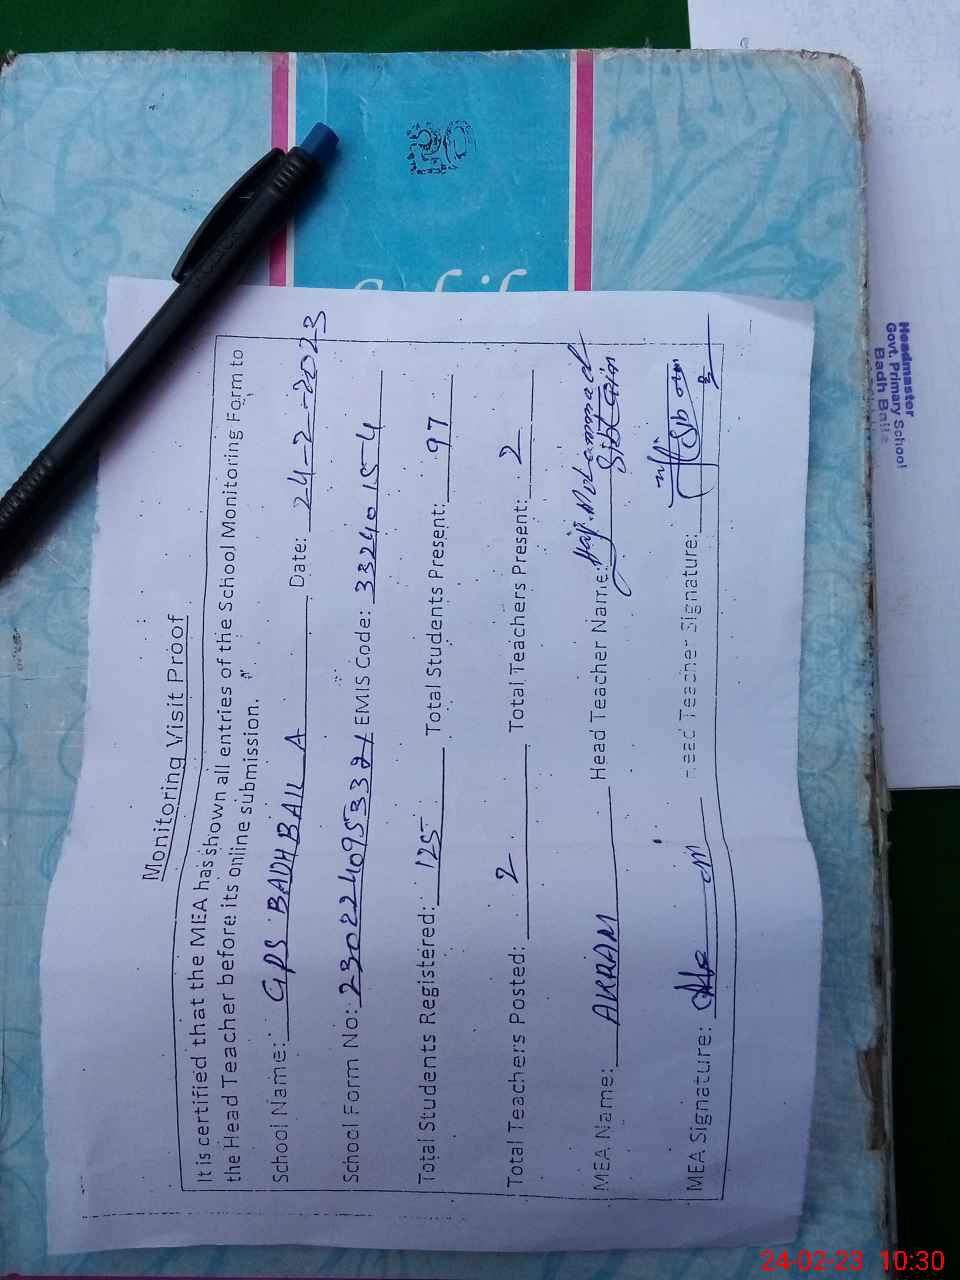 Monitoring Visit Proof
It is certified that the MEA has shown all entries of the School Monitoring Form to
the Head Teacher before its online submission.
School Name: GPS BADH BAIL A Date: 24-2-2023
School Form No: EMIS Code: 33240154
Total Students Registered: 125 Total Students Present: 97
Total Teachers Posted: 2 Total Teachers Present: 2
MEA Name: AKRAM Head Teacher Name: Muhammad
MEA Signature: Head Teacher Signature:
Headmaster
Govt. Primary School
Badh Baila
24-02-23 10:30